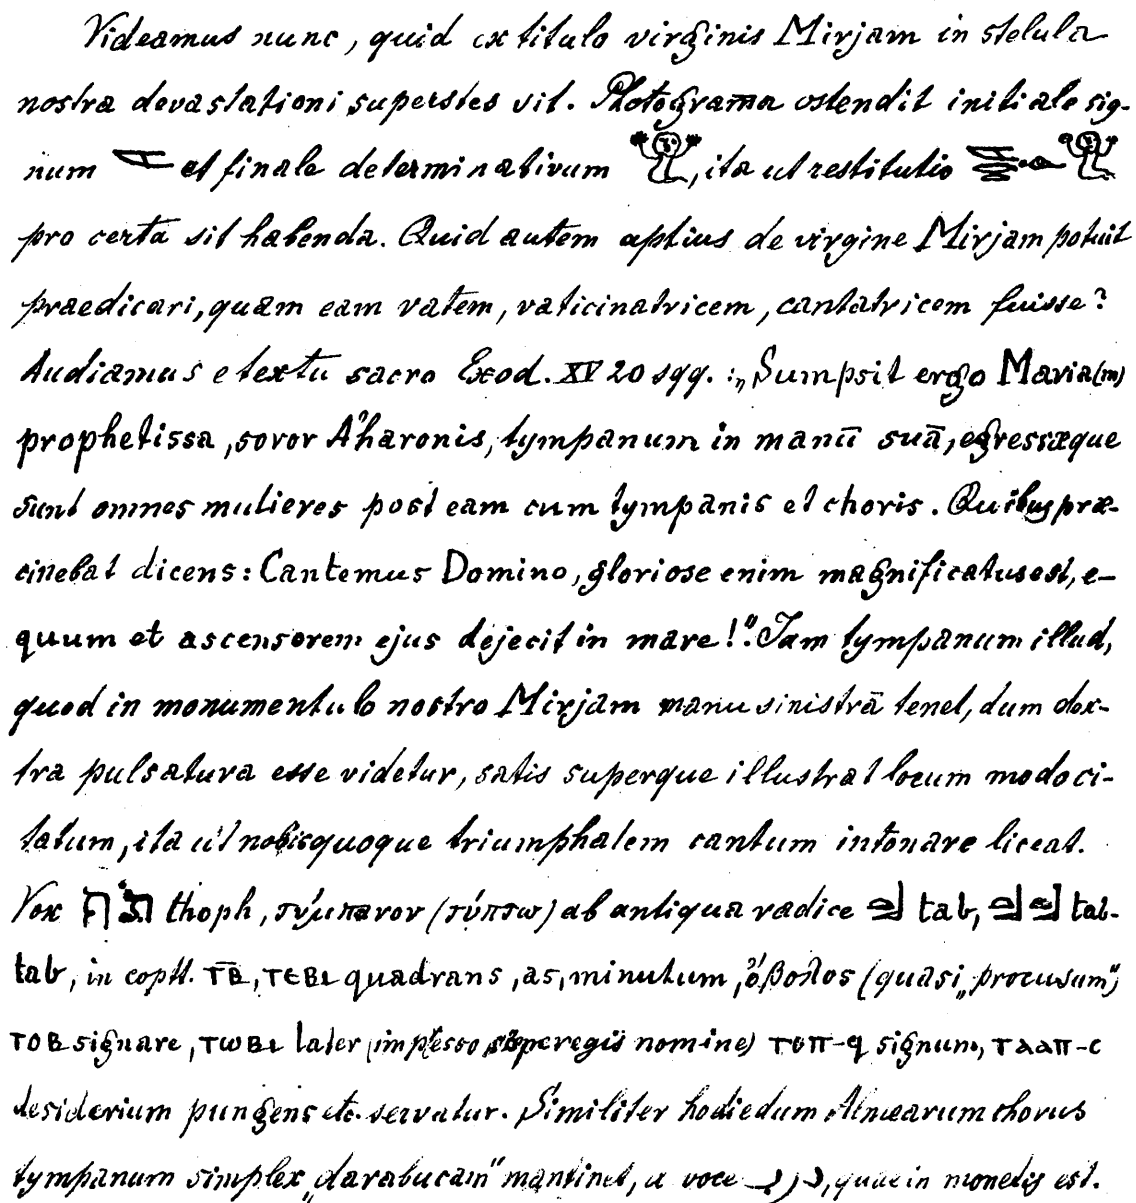 Videamus nunc, quid ex titulo virginis Mirjam in stelula
nostra devastationi superstes sit. Photogram̄a ostendit initiale sig-
num et finale determinativum, ita ut restitutio
pro certa sit habenda. Quid autem aptius de virgine Mirjam potuit
praedicari, quam eam vatem, vaticinatricem, cantatricem fuisse?
Audiamus e textu sacro Exod. XV 20 sqq.: „Sumpsit ergo Maria(m)
prophetissa, soror Aharonis, tympanum in manū suā, egressæque
sunt omnes mulieres post eam cum tympanis et choris. Quibus præ-
cinebat dicens: Cantemus Domino, gloriose enim magnificatus est, e-
quum et ascensorem ejus dejecit in mare!" Jam tympanum illud,
quod in monumentulo nostro Mirjam manu sinistrā tenet, dum dex-
tra pulsatura esse videtur, satis superque illustrat locum modo ci-
tatum, ita ut nobis quoque triumphalem cantum intonare liceat.
Vox תֹּף thoph, τύμπανον (τύπτω) ab antiqua radice tab, tab-
tab, in coptt. ⲧⲃ̄, ⲧⲉⲃⲓ quadrans, as, minutum, ὄβολος (quasi „procusum")
ⲧⲟⲃ signare, ⲧⲱⲃⲓ later (impresso regis nomine) ⲧⲉⲡ-ϥ signum, ⲧⲁⲁⲡ-ⲥ
desiderium pungens etc. servatur. Similiter hodiedum Almearum chorus
tympanum simplex „darabucam" mantinet, a voce, quae in monedis est.